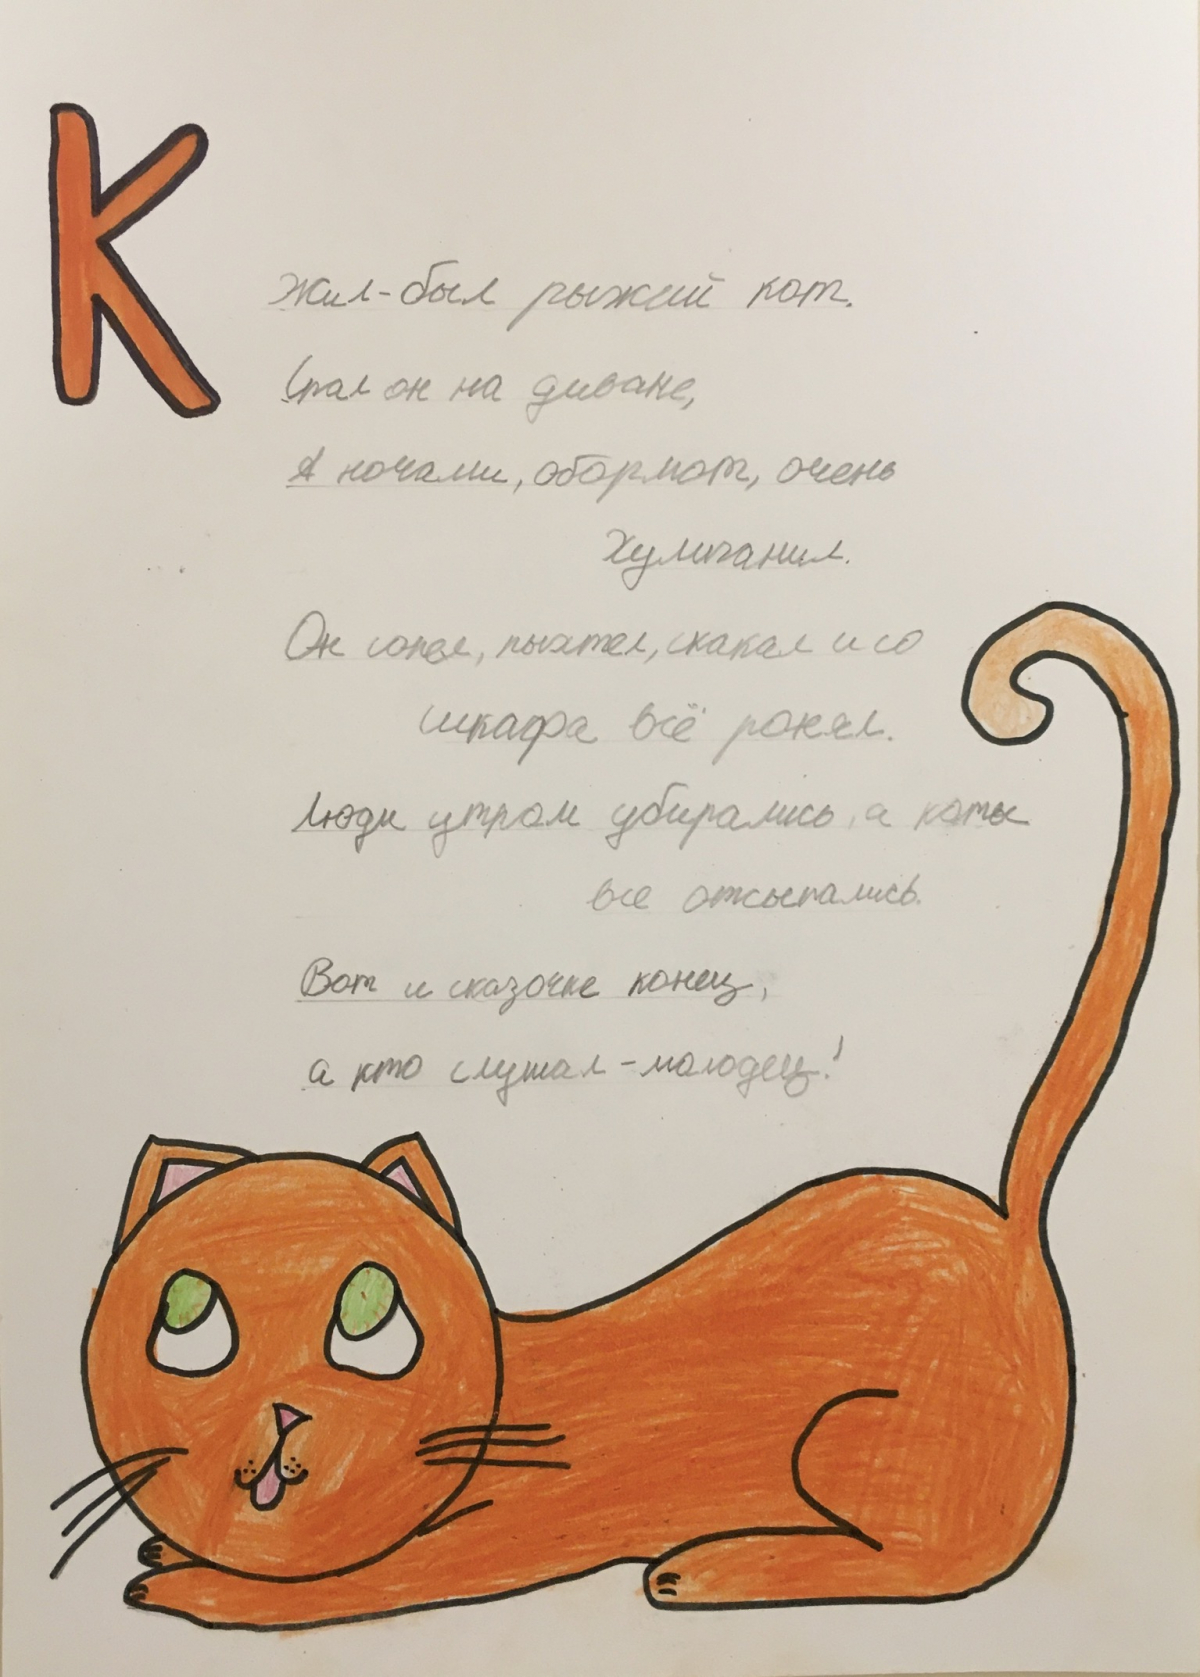 К
Жил-был рыжий кот.
Спал он на диване,
А ночами, обормот, очень
хулиганил.
Он сопел, пыхтел, скакал и со
шкафа всё ронял.
Люди утром убирались, а коты
все отсыпались.
Вот и сказочке конец,
а кто слушал - молодец!